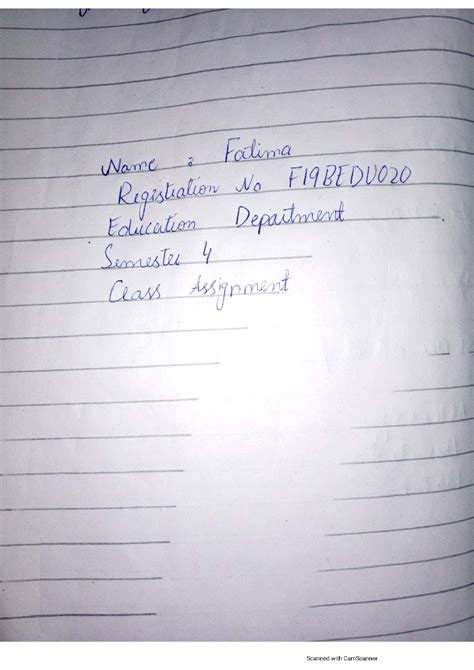 Name : Fatima
Registration No F19BEDU020
Education Department
Semester 4
Class Assignment
Scanned with CamScanner